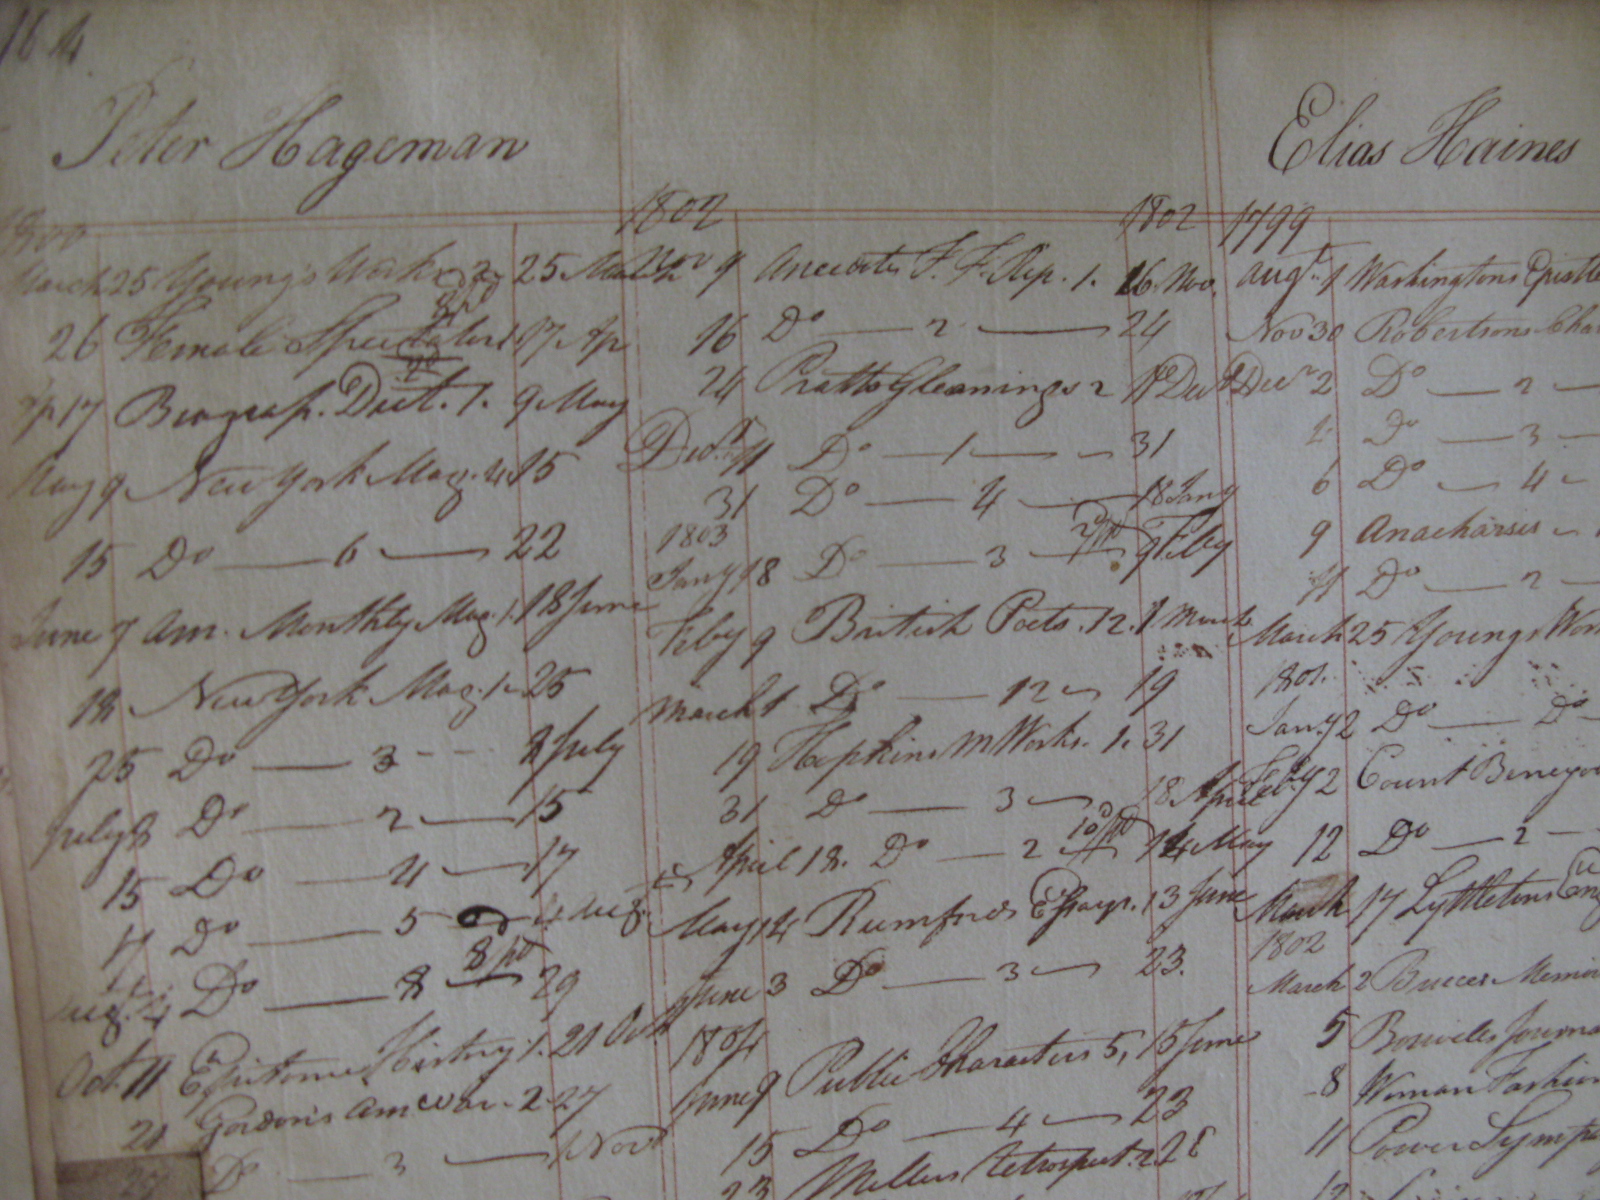 Peter Hageman
1800
March 25 Young's Works 2 25 March
26 Female Spectator 1 17 Ap
Ap 17 Biograp. Dict. 1. 9 May
May 9 New York Mag. 4 15
15 Do — 6 — 22
June 7 Am. Monthly Mag. 1. 18 June
18 New York Mag. 1 25
25 Do — 3 - - 8 July
July 8 Do — 2 — 15
15 Do — 4 — 17
17 Do — 5 4 Aug.
Augt. 4 Do — 8 8/pd 29
Oct. 11 Epitome History 1. 21 Oct
21 Gordon's Am War. 2 27
Do — 3 — Nov
1802 1802
Nov 9 Anecdotes F. F. Rep. 1. 16 Nov.
16 Do — 2 — 24
24 Pratts Gleanings 2 11 Decr
Decr. 11 Do — 1 — 31
31 Do — 4 — 18 Jany
1803
Jany 18 Do — 3 — 9 Feby
Feby 9 British Poets. 12. 1 March
March 1 Do — 12 19
19 Hopkins M Works. 1. 31
31 Do — 3 18 April
April 18. Do — 2 10/pd 14 May
May 14 Rumfords Essays. 1 3 June
June 3 Do — 3 23.
1804
June 9 Public Characters 5, 15 June
15 Do — 4 — 23
23 Millers Retrospect. 2 28
Elias Haines
1799
Augt. 1 Washingtons Epistle
Nov 30 Robertsons Cha
Decr 2 Do — 2 —
4 Do — 3 —
6 Do — 4
9 Anacharsis
11 Do — 2 —
March 25 Youngs Wor
1801.
Jany. 2 Do — Do
Feby 2 Count Benyo
12 Do — 2 —
March 17 Lyttletons
1802
March 2 Bruces Memoi
5 Boswells Journa
8 Woman Fashion
11 Power Sympa